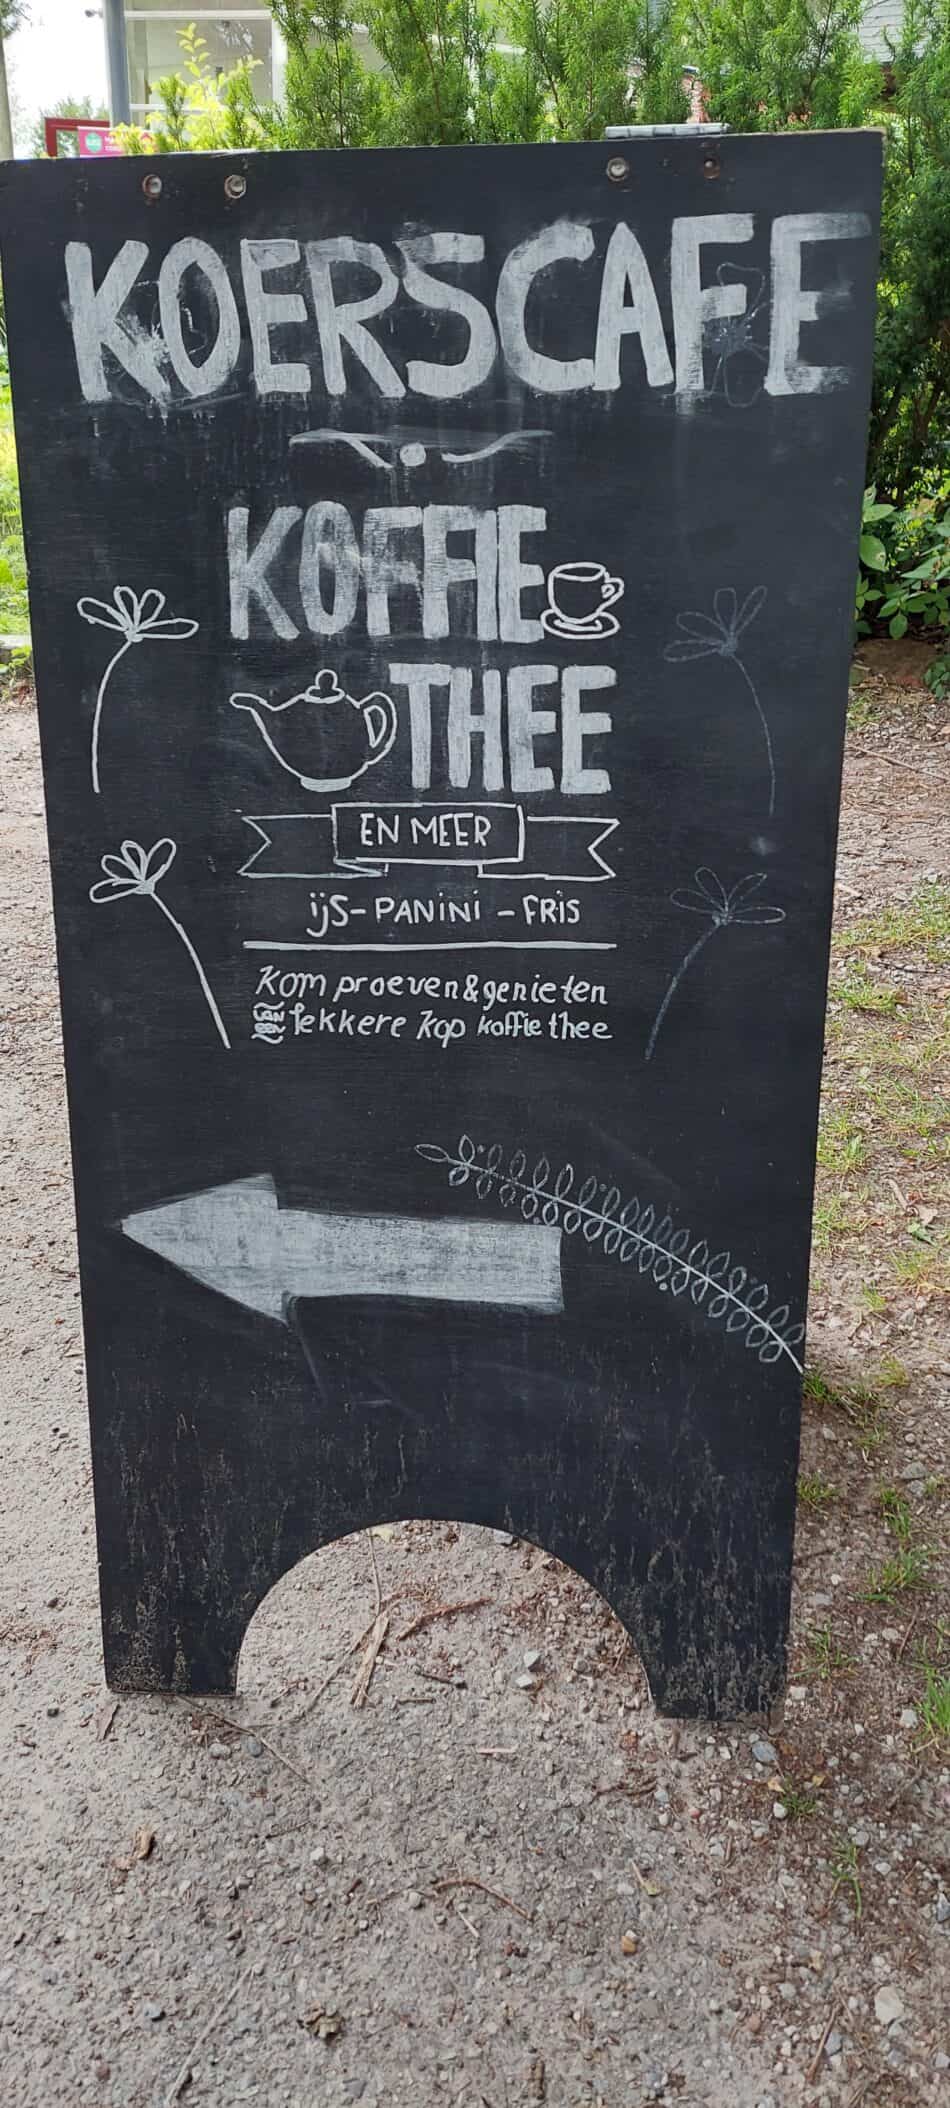 KOERSCAFE
KOFFIE
THEE
EN MEER
ijS-PANiNi-FRiS
Kom proeven & genieten
van een lekkere kop koffie thee